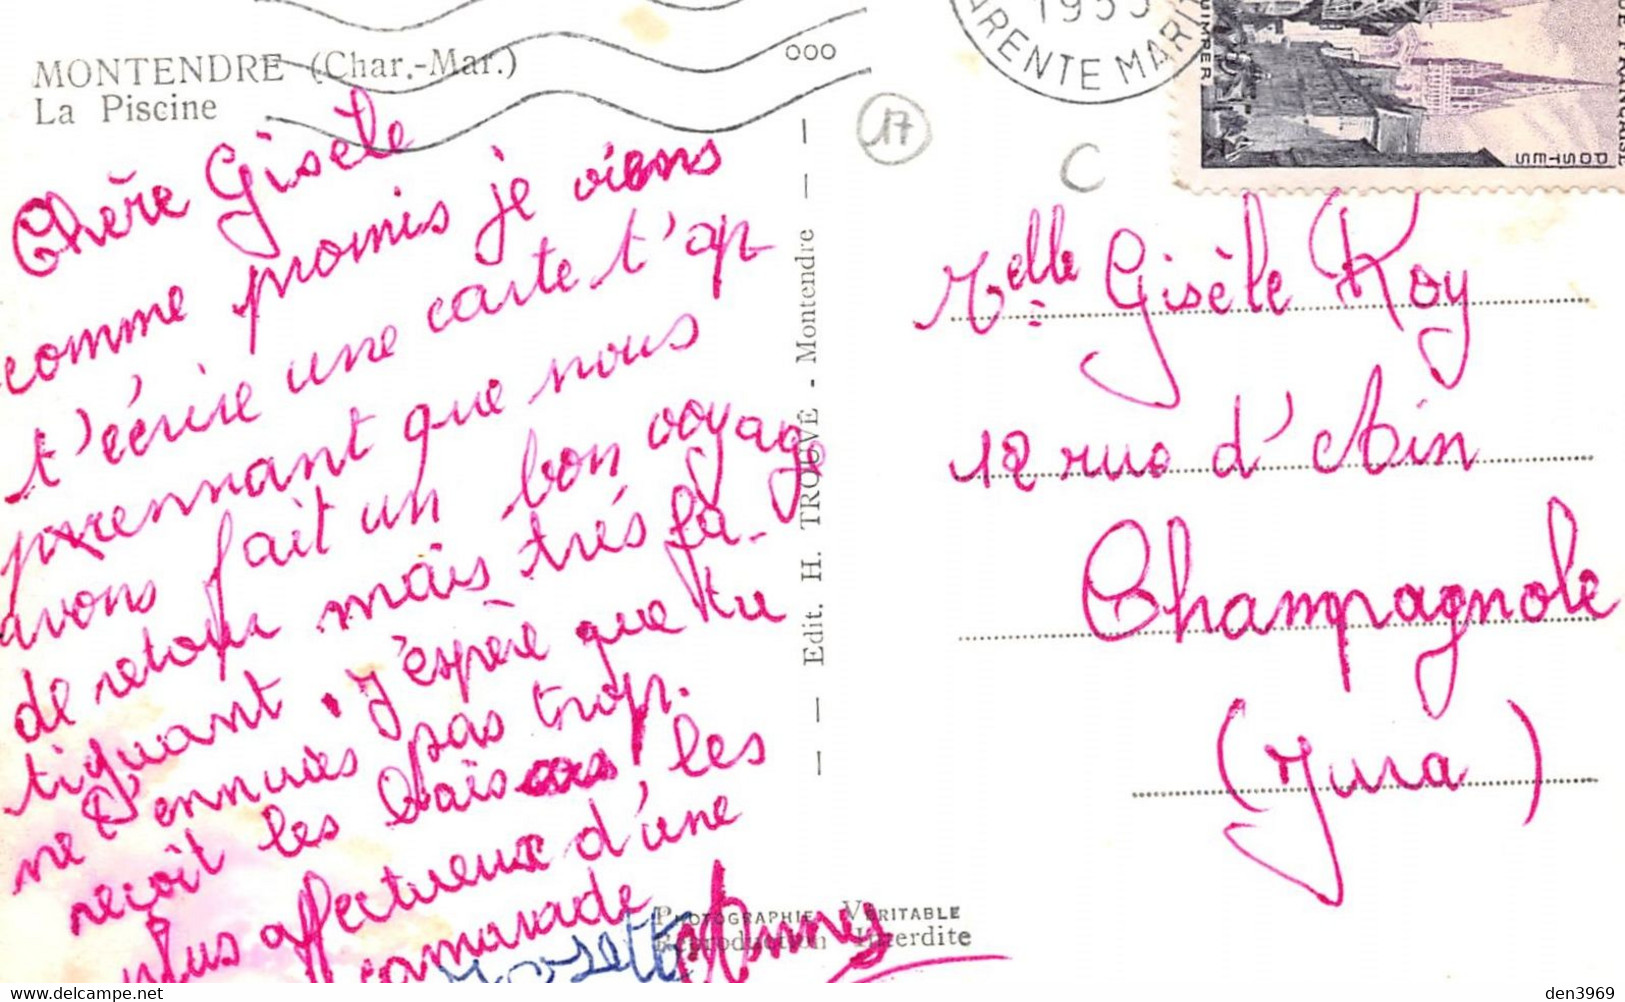 MONTENDRE (Char.-Mar.)
La Piscine
Chère Gisèle
comme promis je viens
t'écrire une carte t'ap
prennant que nous
avons fait un bon voyage
de retour mais très fa-
tiguant. J'espère que tu
ne t'ennuies pas trop.
reçoit les baisers les
plus affectueux d'une
camarade
Anny
Josette
— Edit. H. TROUVÉ - Montendre —
PHOTOGRAPHIE VÉRITABLE
Reproduction Interdite
000
ARENTE MARI
17
C
QUIMPER
POSTES
UE FRANÇAISE
Melle Gisèle Roy
12 rue d'Ain
Champagnole
(Jura)
den3969